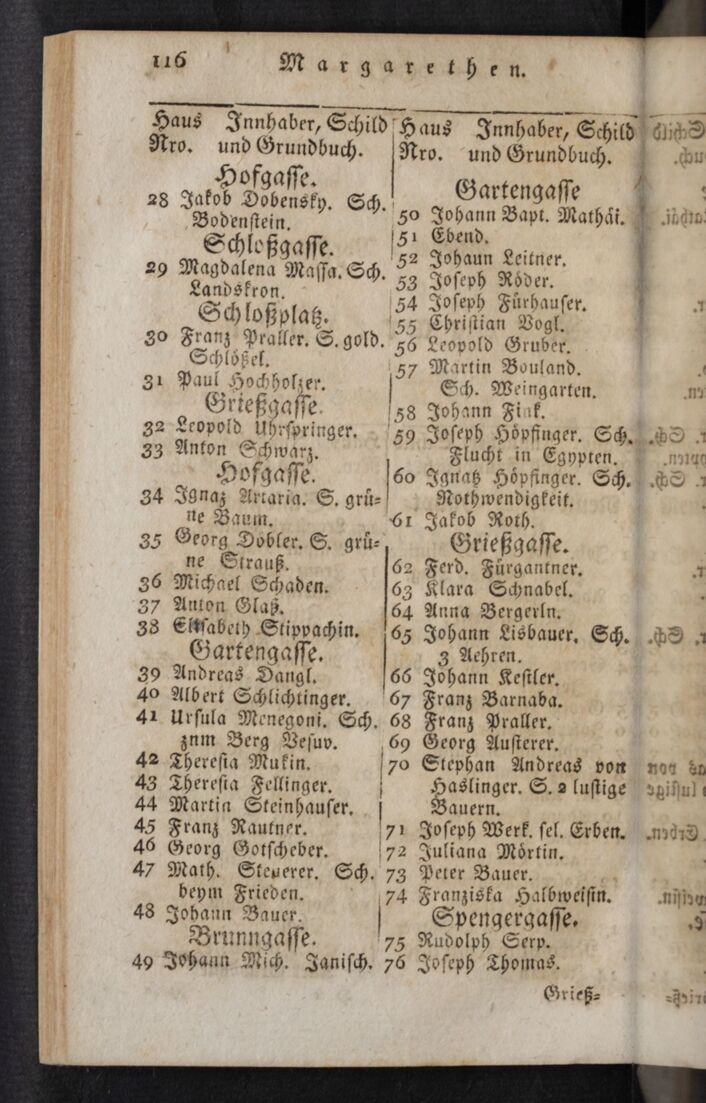 116 Margarethen.
Haus Innhaber, Schild
Nro. und Grundbuch.
Hofgasse.
28 Jakob Dobensky. Sch.
Bodenstein.
Schloßgasse.
29 Magdalena Massa. Sch.
Landskron.
Schloßplatz.
30 Franz Praller. S. gold.
Schlößel.
31 Paul Hochholzer.
Grießgasse.
32 Leopold Uhrspringer.
33 Anton Schwarz.
Hofgasse.
34 Ignaz Artaria. S. grü-
ne Baum.
35 Georg Dobler. S. grü-
ne Strauß.
36 Michael Schaden.
37 Anton Glaß.
38 Elisabeth Stippachin.
Gartengasse.
39 Andreas Dangl.
40 Albert Schlichtinger.
41 Ursula Menegoni. Sch.
znm Berg Vesuv.
42 Theresia Mukin.
43 Theresia Fellinger.
44 Martin Steinhauser.
45 Franz Rautner.
46 Georg Gotscheber.
47 Math. Steuerer. Sch.
beym Frieden.
48 Johann Bauer.
Brunngasse.
49 Johann Mich. Janisch.
Haus Innhaber, Schild
Nro. und Grundbuch.
Gartengasse
50 Johann Bapt. Mathäi.
51 Ebend.
52 Johaun Leitner.
53 Joseph Röder.
54 Joseph Fürhauser.
55 Christian Vogl.
56 Leopold Gruber.
57 Martin Bouland.
Sch. Weingarten.
58 Johann Fink.
59 Joseph Höpfinger. Sch.
Flucht in Egypten.
60 Ignatz Höpfinger. Sch.
Nothwendigkeit.
61 Jakob Roth.
Grießgasse.
62 Ferd. Fürgantner.
63 Klara Schnabel.
64 Anna Bergerln.
65 Johann Lisbauer. Sch.
3 Aehren.
66 Johann Kestler.
67 Franz Barnaba.
68 Franz Praller.
69 Georg Austerer.
70 Stephan Andreas von
Haslinger. S. 2 lustige
Bauern.
71 Joseph Werk. sel. Erben.
72 Juliana Mörtin.
73 Peter Bauer.
74 Franziska Halbweisin.
Spengergasse.
75 Rudolph Serp.
76 Joseph Thomas.
Grieß-